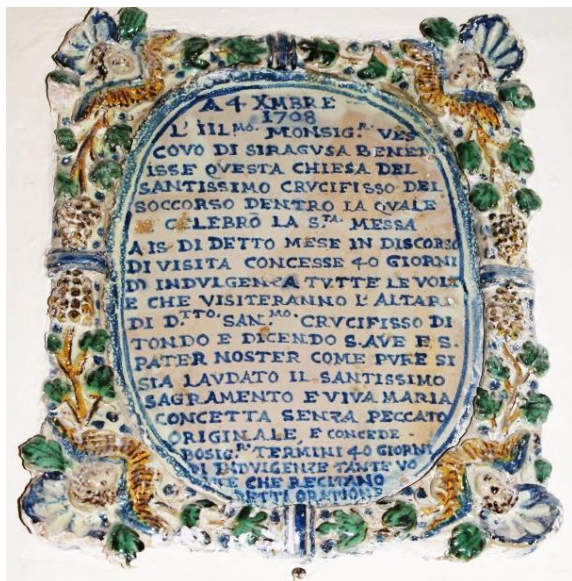 A 4 XMBRE
1708
L'IIL.MO. MONSIG.R VES
COVO DI SIRAGUSA BENED
ISSE QVESTA CHIESA DEL
SANTISSIMO CRVCIFISSO DEL
SOCCORSO DENTRO LA QVALE
CELEBRÒ LA S.TA MESSA
A IS DI DETTO MESE IN DISCORSO
DI VISITA CONCESSE 40 GIORNI
DI INDVLGENZA TVTTE LE VOLT
E CHE VISITERANNO L'ALTARE
DI D.TTO. SAN.MO. CRVCIFISSO DI
TONDO E DICENDO 5. AVE E 5.
PATER NOSTER COME PVRE SI
SIA LAVDATO IL SANTISSIMO
SAGRAMENTO E VIVA MARIA
CONCETTA SENZA PECCATO
ORIGINALE, E CONCEDE
TERMINI 40 GIORNI
DI INDVLGENZE TANTE VO
CHE RECITANO
ORATIONE